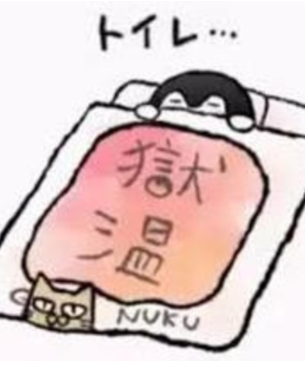 トイレ…
獄
温
NUKU